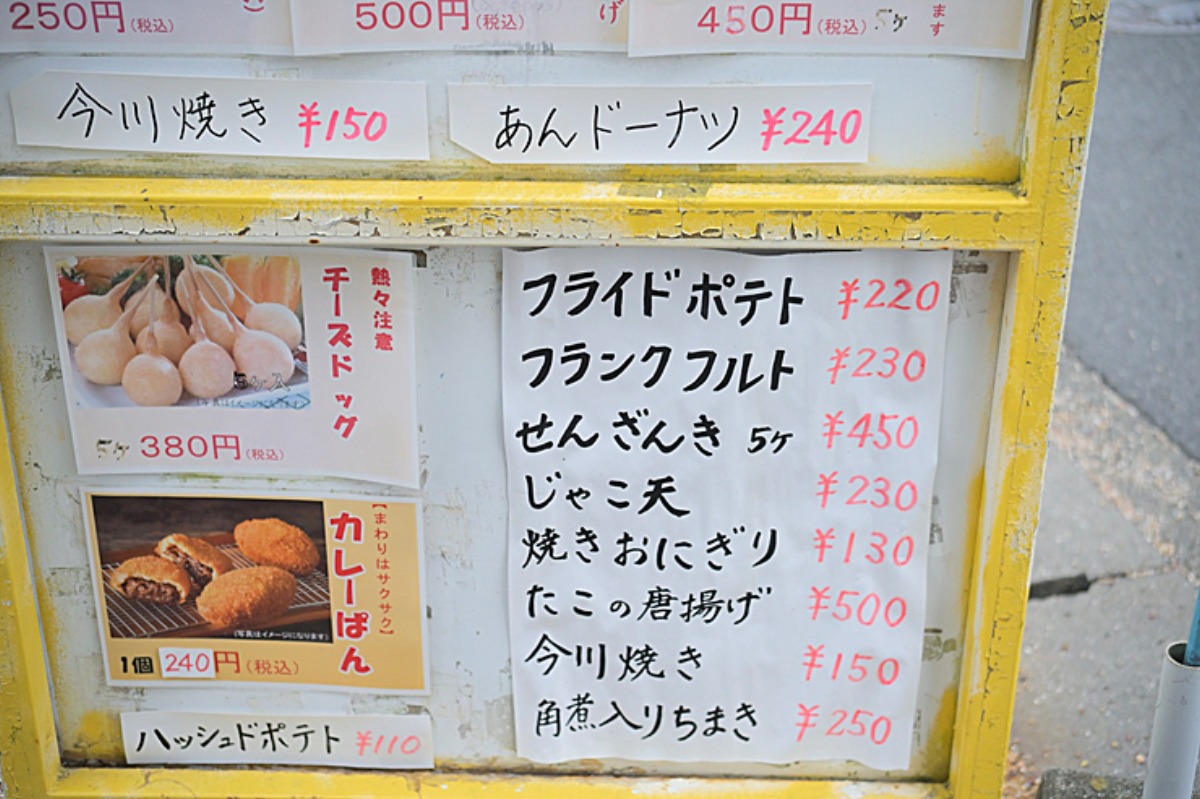 250円(税込)
500円(税込)
げ
450円(税込) 5ヶ
ます
今川焼き ¥150
あんドーナツ ¥240
熱々注意
チーズドッグ
5ヶ入
(写真はイメージになります)
5ヶ 380円(税込)
【まわりはサクサク】
カレーぱん
(写真はイメージになります)
1個 240円(税込)
ハッシュドポテト ¥110
フライドポテト ¥220
フランクフルト ¥230
せんざんき 5ヶ ¥450
じゃこ天 ¥230
焼きおにぎり ¥130
たこの唐揚げ ¥500
今川焼き ¥150
角煮入りちまき ¥250